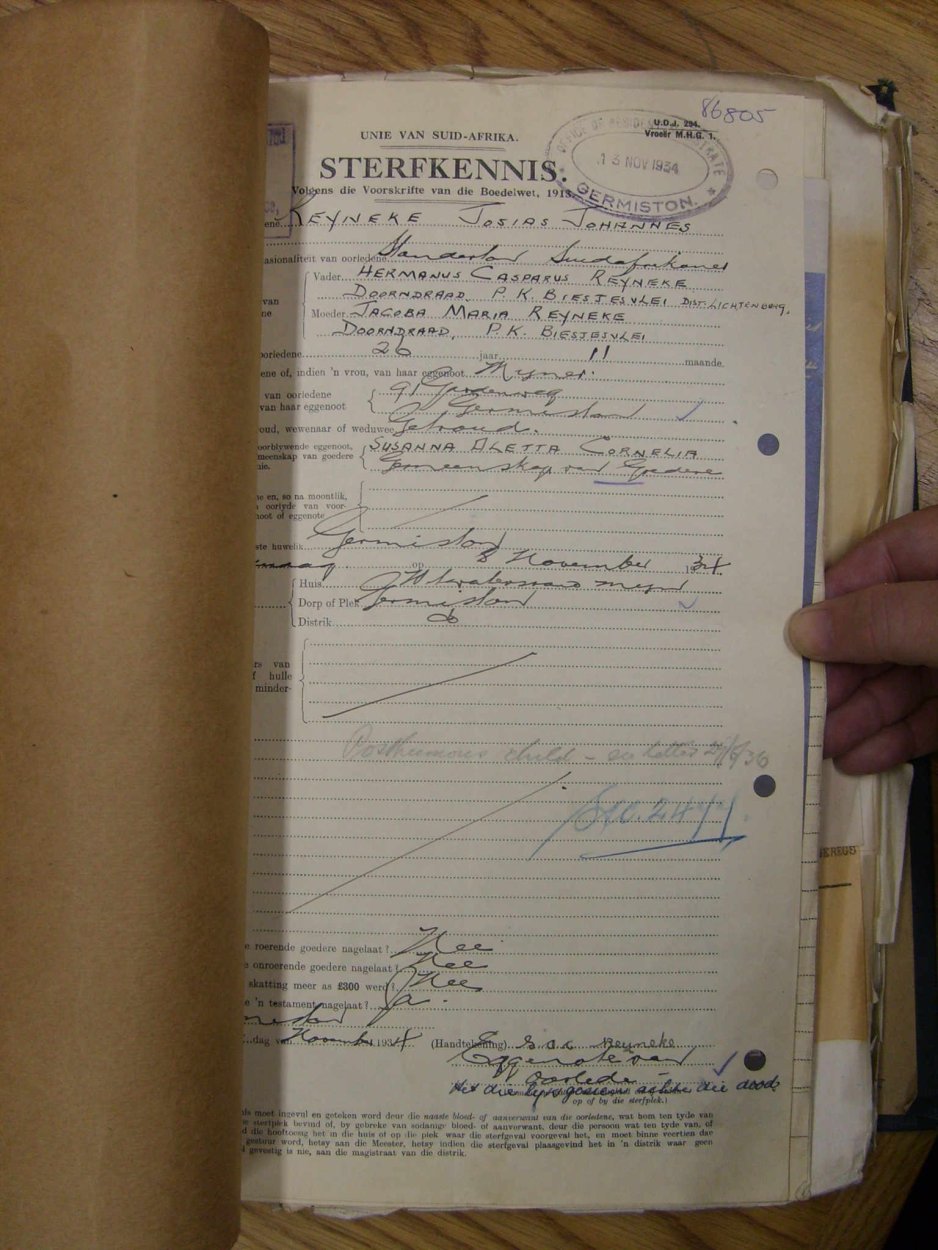 86805
U.D.J. 294.
Vroeër M.H.G. 1.
UNIE VAN SUID-AFRIKA.
STERFKENNIS.
Volgens die Voorskrifte van die Boedelwet, 1913.
13 NOV 1934
GERMISTON.
REYNEKE JOSIAS JOHANNES
asionaliteit van oorledene Standerton Suidafrikaner
Vader HERMANUS CASPARUS REYNEKE
DOORNDRAAD, P.K. BIESJESVLEI DIST. LICHTENBURG,
Moeder JACOBA MARIA REYNEKE
DOORNDRAAD, P.K. BIESJESVLEI
oorledene 26 jaar 11 maande.
ene of, indien 'n vrou, van haar eggenoot Myner.
van oorledene 91
van haar eggenoot Germiston
oud, wewenaar of weduwee Getroud.
oorblywende eggenoot, SUSANNA ALETTA CORNELIA
meenskap van goedere Gemeenskap van Goedere
nie.
e en, so na moontlik,
oorlyde van voor-
noot of eggenote
ste huwelik Germiston
op 8 November 1934
Huis Witwatersrand Myn
Dorp of Plek Germiston
Distrik do
rs van
f hulle
minder-
Posthumous child - see letter
2477
e roerende goedere nagelaat? Nee
e onroerende goedere nagelaat? Nee
skatting meer as £300 werd? Nee
e 'n testament nagelaat? Ja.
dag van November 1934 (Handtekening) S.A.C. Reyneke
Eggenote van
oorlede
op of by die sterfplek.)
is moet ingevul en geteken word deur die naaste bloed- of aanverwant van die oorledene, wat hom ten tyde van
e sterfplek bevind of, by gebreke van sodanige bloed- of aanverwant, deur die persoon wat ten tyde van, of
d die hooftoesig het in die huis of op die plek waar die sterfgeval voorgeval het, en moet binne veertien dae
gestuur word, hetsy aan die Meester, hetsy indien die sterfgeval plaasgevind het in 'n distrik waar geen
gevestig is nie, aan die magistraat van die distrik.